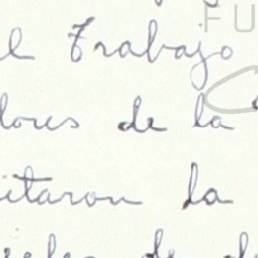 FU
el Trabajo
lores de la
itaron la
de